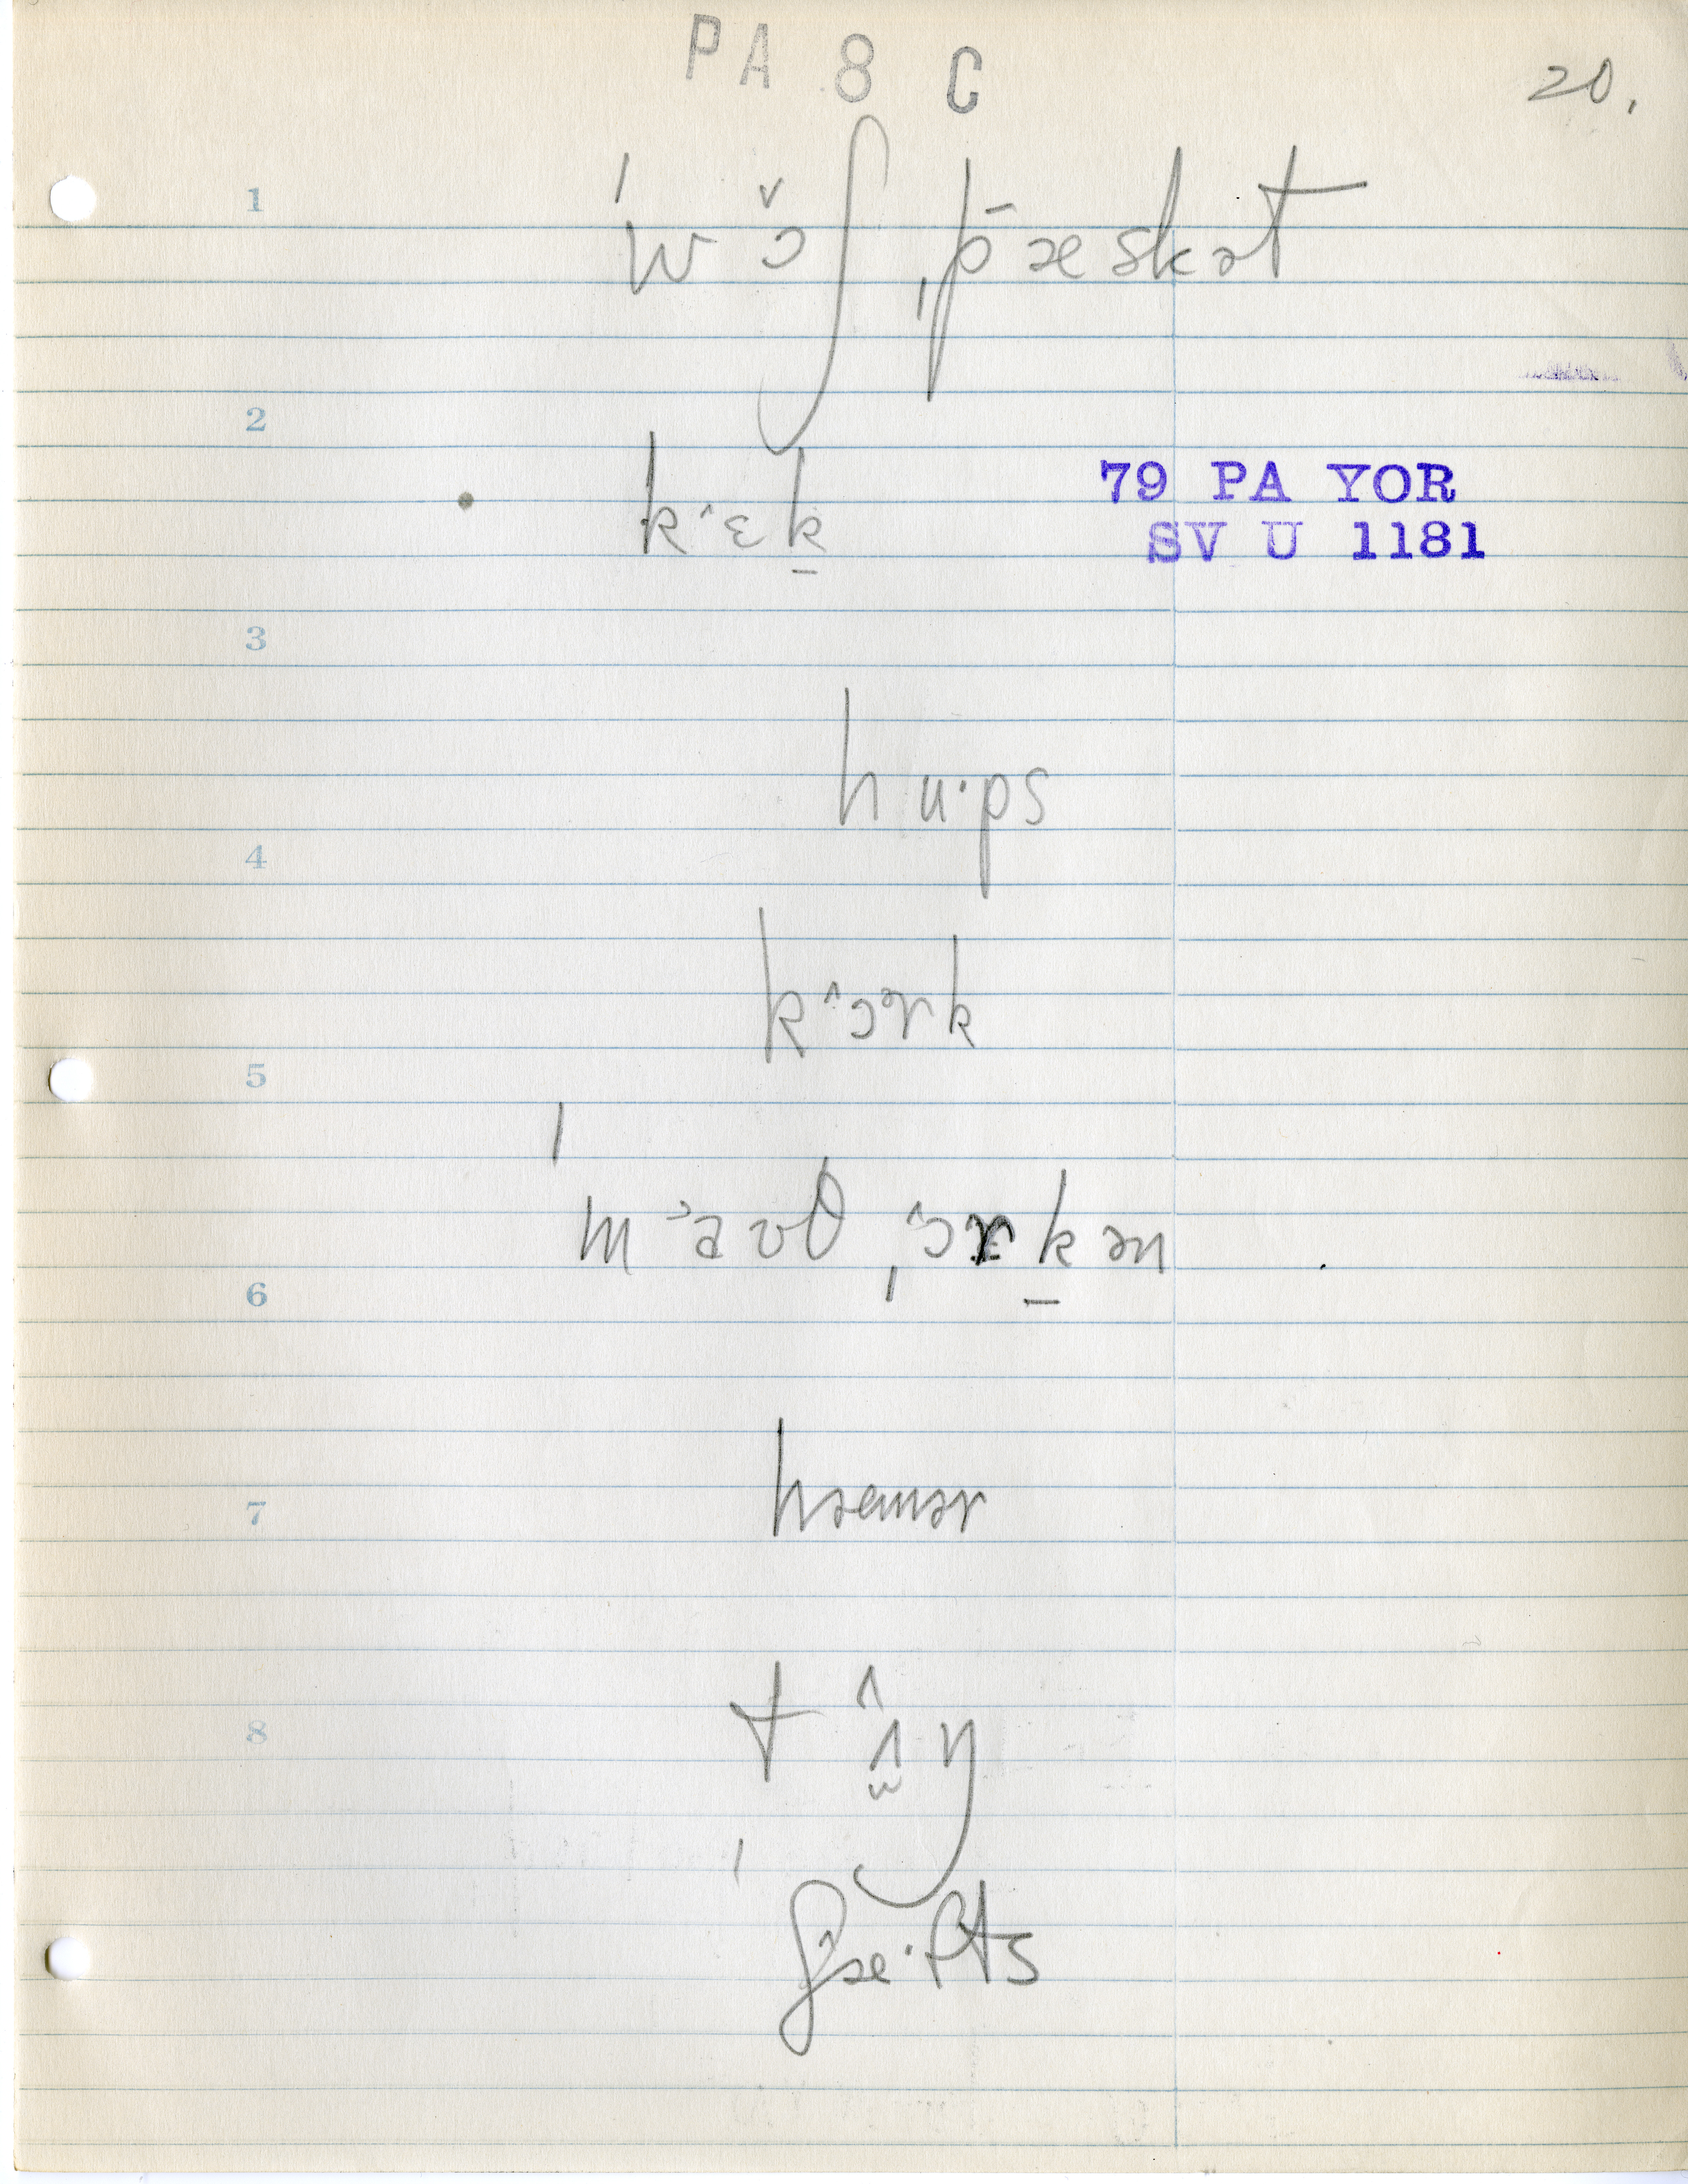 PA 8 C
20.
1
ˈwɔ̌ʃˌp̄æskət
2
kˆɛk̠
79 PA YOR
SV U 1181
3
hu·ps
4
kˆɔɚk
5
ˈm˃aʊθˌˆɔrk̠ən
6
hæmər
7
8
tʌ̭̂ŋ
ˈʃˆæ·fts